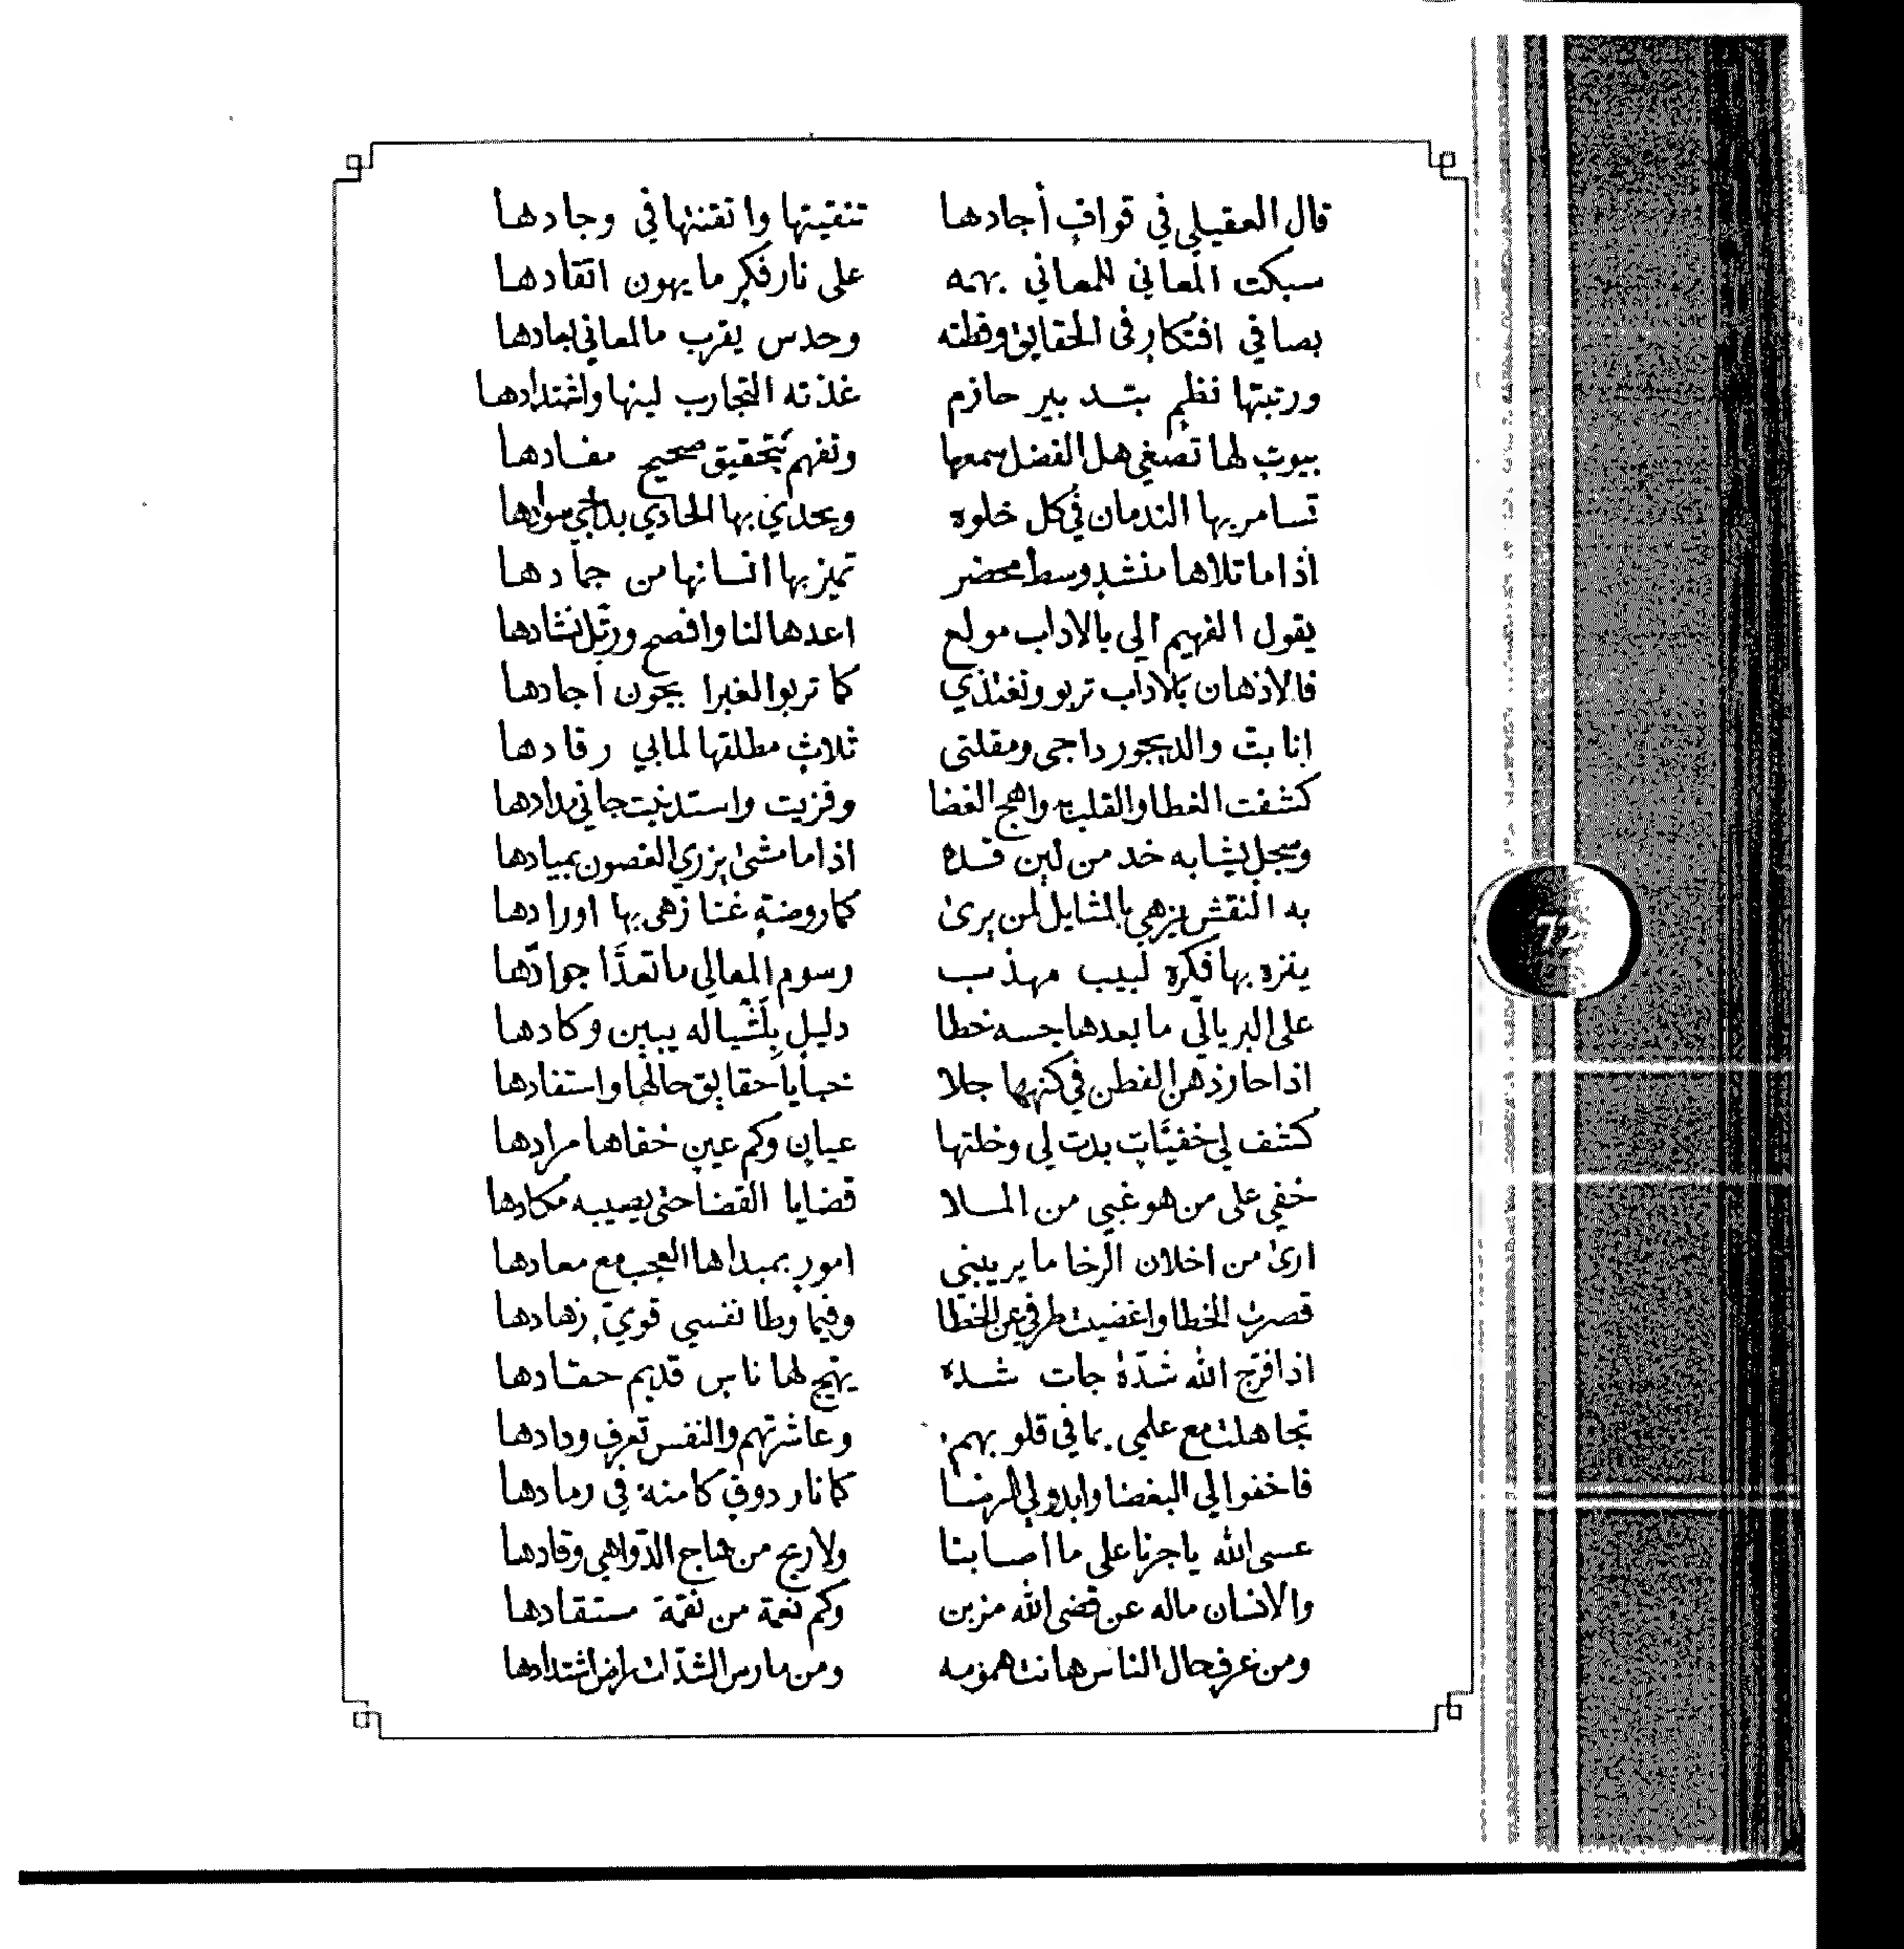 قال العقيلي في قوافٍ أجادها تنقيتها واتقنتها في وجادها
سبكت المعاني للمعاني بهمه على نار فكرٍ ما يهون اتقادها
بصافي افتكارٍ في الحقايق وفطنه وحدس يقرب مالمعاني بعادها
ورتبتها نظمٍ بتدبير حازم غذته التجارب لينها واشتدادها
بيوتٍ لها تصغي هل الفضل سمعها وتفهم بتحقيق صحيح مفادها
تسامر بها الندمان في كل خلوه ويحدي بها الحادي بداجي سوادها
اذا ما تلاها منشدٍ وسط محضر تميز بها انسانها من جمادها
يقول الفهيم الي بالاداب مولع اعدها لنا وافصح ورتل نشادها
فالاذهان بالاداب تربو وتغتذي كما تربو الغبرا بجون أجادها
انا بت والديجور داجي ومقلتى ثلاثٍ مطلقها لمابي رقادها
كشفت الغطا والقلب واهج الغضا وفزيت واستدنيت جاني مدادها
وسجلٍ يشابه خد من لين قده اذا ما مشى يزري الغصون بميادها
به النقش يزهي بالمثايل لمن يرى كما روضةٍ غنا زهى بها اورادها
ينزه بها فكره لبيب مهذب وسوم المعالي ما تعدّا جوادّها
على البريا لّي ما بعدها جسه خطا دليلٍ يبين وكادها
اذا حار ذهن الفطن في كنهها جلا خبايا حقايق حالها واستفادها
كشف لي خفيّات بدت لي وخلتها عيانٍ وكم عينٍ خفاها مرادها
خفي على من هو غبي من الملا قضايا القضا حتى يصيبه مكادها
ارى من اخلان الرخا ما يريبني امورٍ بمبداها العجب مع معادها
قصرت الخطا واغضيت طرفي عن الخطا وفيما وطا نفسي قويّ زهادها
اذا فرّج الله شدّة جات شده يهيج لها ناسٍ قديم حقادها
تجاهلت مع علمي بما في قلوبهم وعاشرتهم والنفس تعرف ودادها
فاخفوا لي البغضا وابدو لي الرضا كما نار دوقٍ كامنة في رمادها
عسى الله ياجرنا على ما اصابنا ولا ربح من هاج الدّواهي وقادها
والانسان ماله عن قضى الله مزبن وكم نعمة من نقمة مستقادها
ومن عرف حال الناس هانت همومه ومن مارس الشدّات راض اشتدادها
72